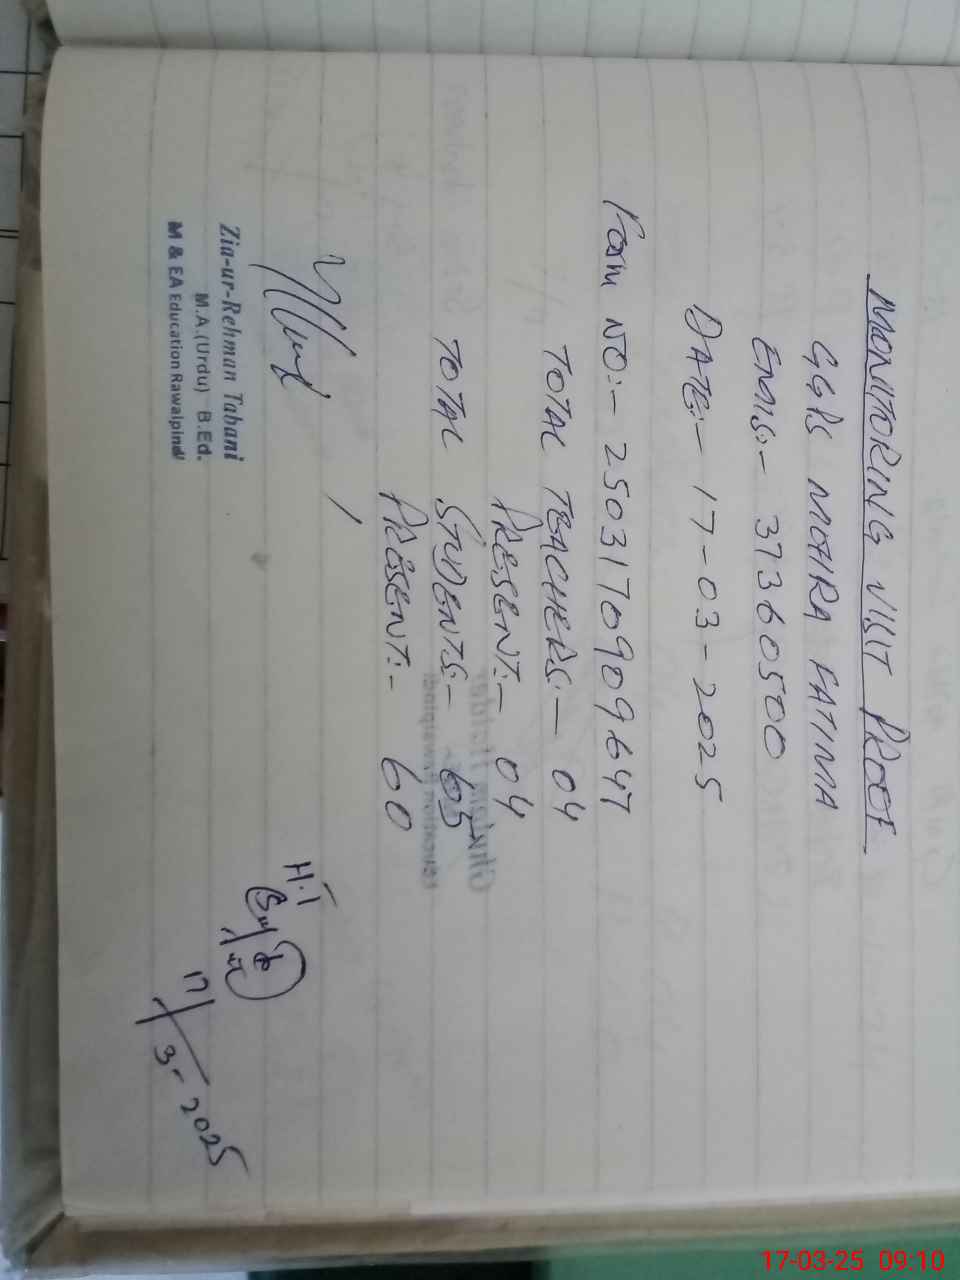 MONITORING VISIT PROOF
GGPS MOHRA FATIMA
EMIS:- 37360500
DATE:- 17-03-2025
Form NO:- 2503170909647
TOTAL TEACHERS:- 04
PRESENT:- 04
TOTAL STUDENTS:- 65
PRESENT:- 60
Zia-ur-Rehman Tabani
M.A.(Urdu) B.Ed.
M & EA Education Rawalpindi
H.T
17/3-2025
17-03-25 09:10